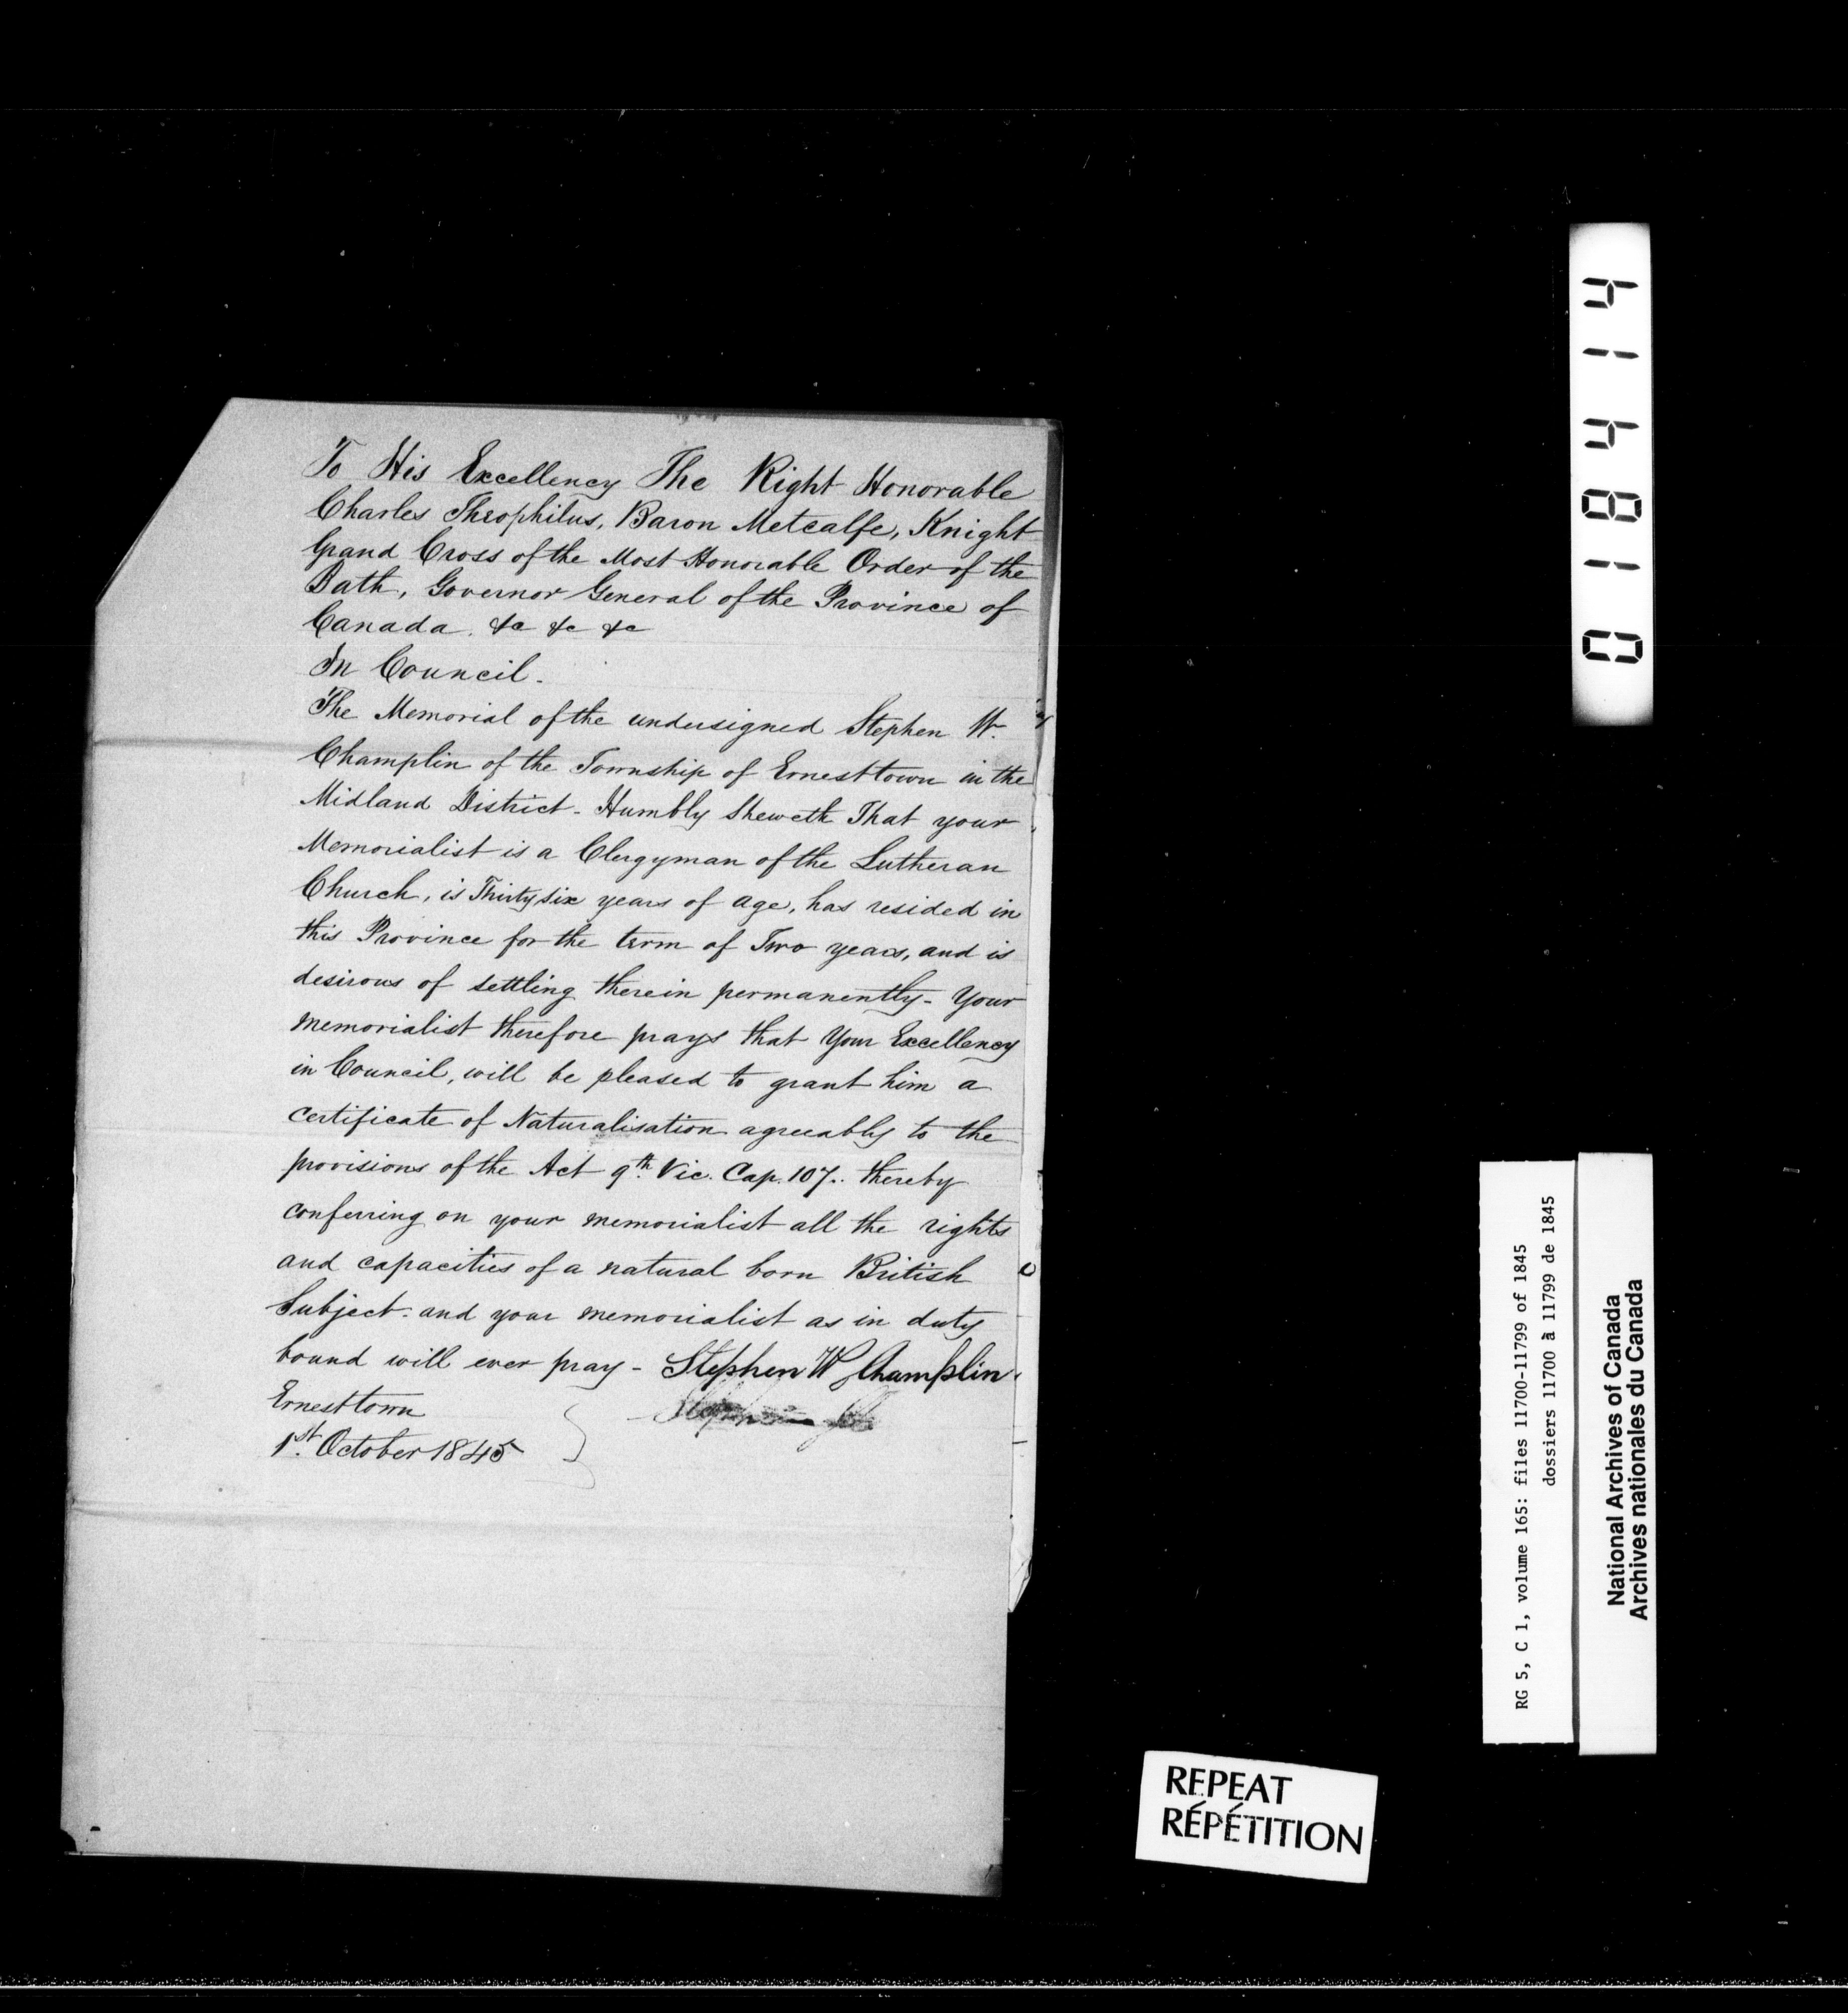 To His Excellency The Right Honorable
Charles Theophilus, Baron Metcalfe, Knight
Grand Cross of the Most Honorable Order of the
Bath, Governor General of the Province of
Canada. &c &c &c
In Council.
The Memorial of the undersigned Stephen W.
Champlin of the Township of Ernesttown in the
Midland District - Humbly Sheweth That your
Memorialist is a Clergyman of the Lutheran
Church, is Thirty six years of age, has resided in
this Province for the term of Two years, and is
desirous of settling therein permanently - Your
memorialist therefore prays that Your Excellency
in Council, will be pleased to grant him a
certificate of Naturalisation agreeably to the
provisions of the Act 9th. Vic. Cap. 107.. thereby
conferring on your memorialist all the rights
and capacities of a natural born British
Subject. and your memorialist as in duty
bound will ever pray - Stephen W Champlin.
Ernesttown
1st. October 1845
018414
RG 5, C 1, volume 165: files 11700-11799 of 1845
dossiers 11700 à 11799 de 1845
National Archives of Canada
Archives nationales du Canada
REPEAT
RÉPÉTITION